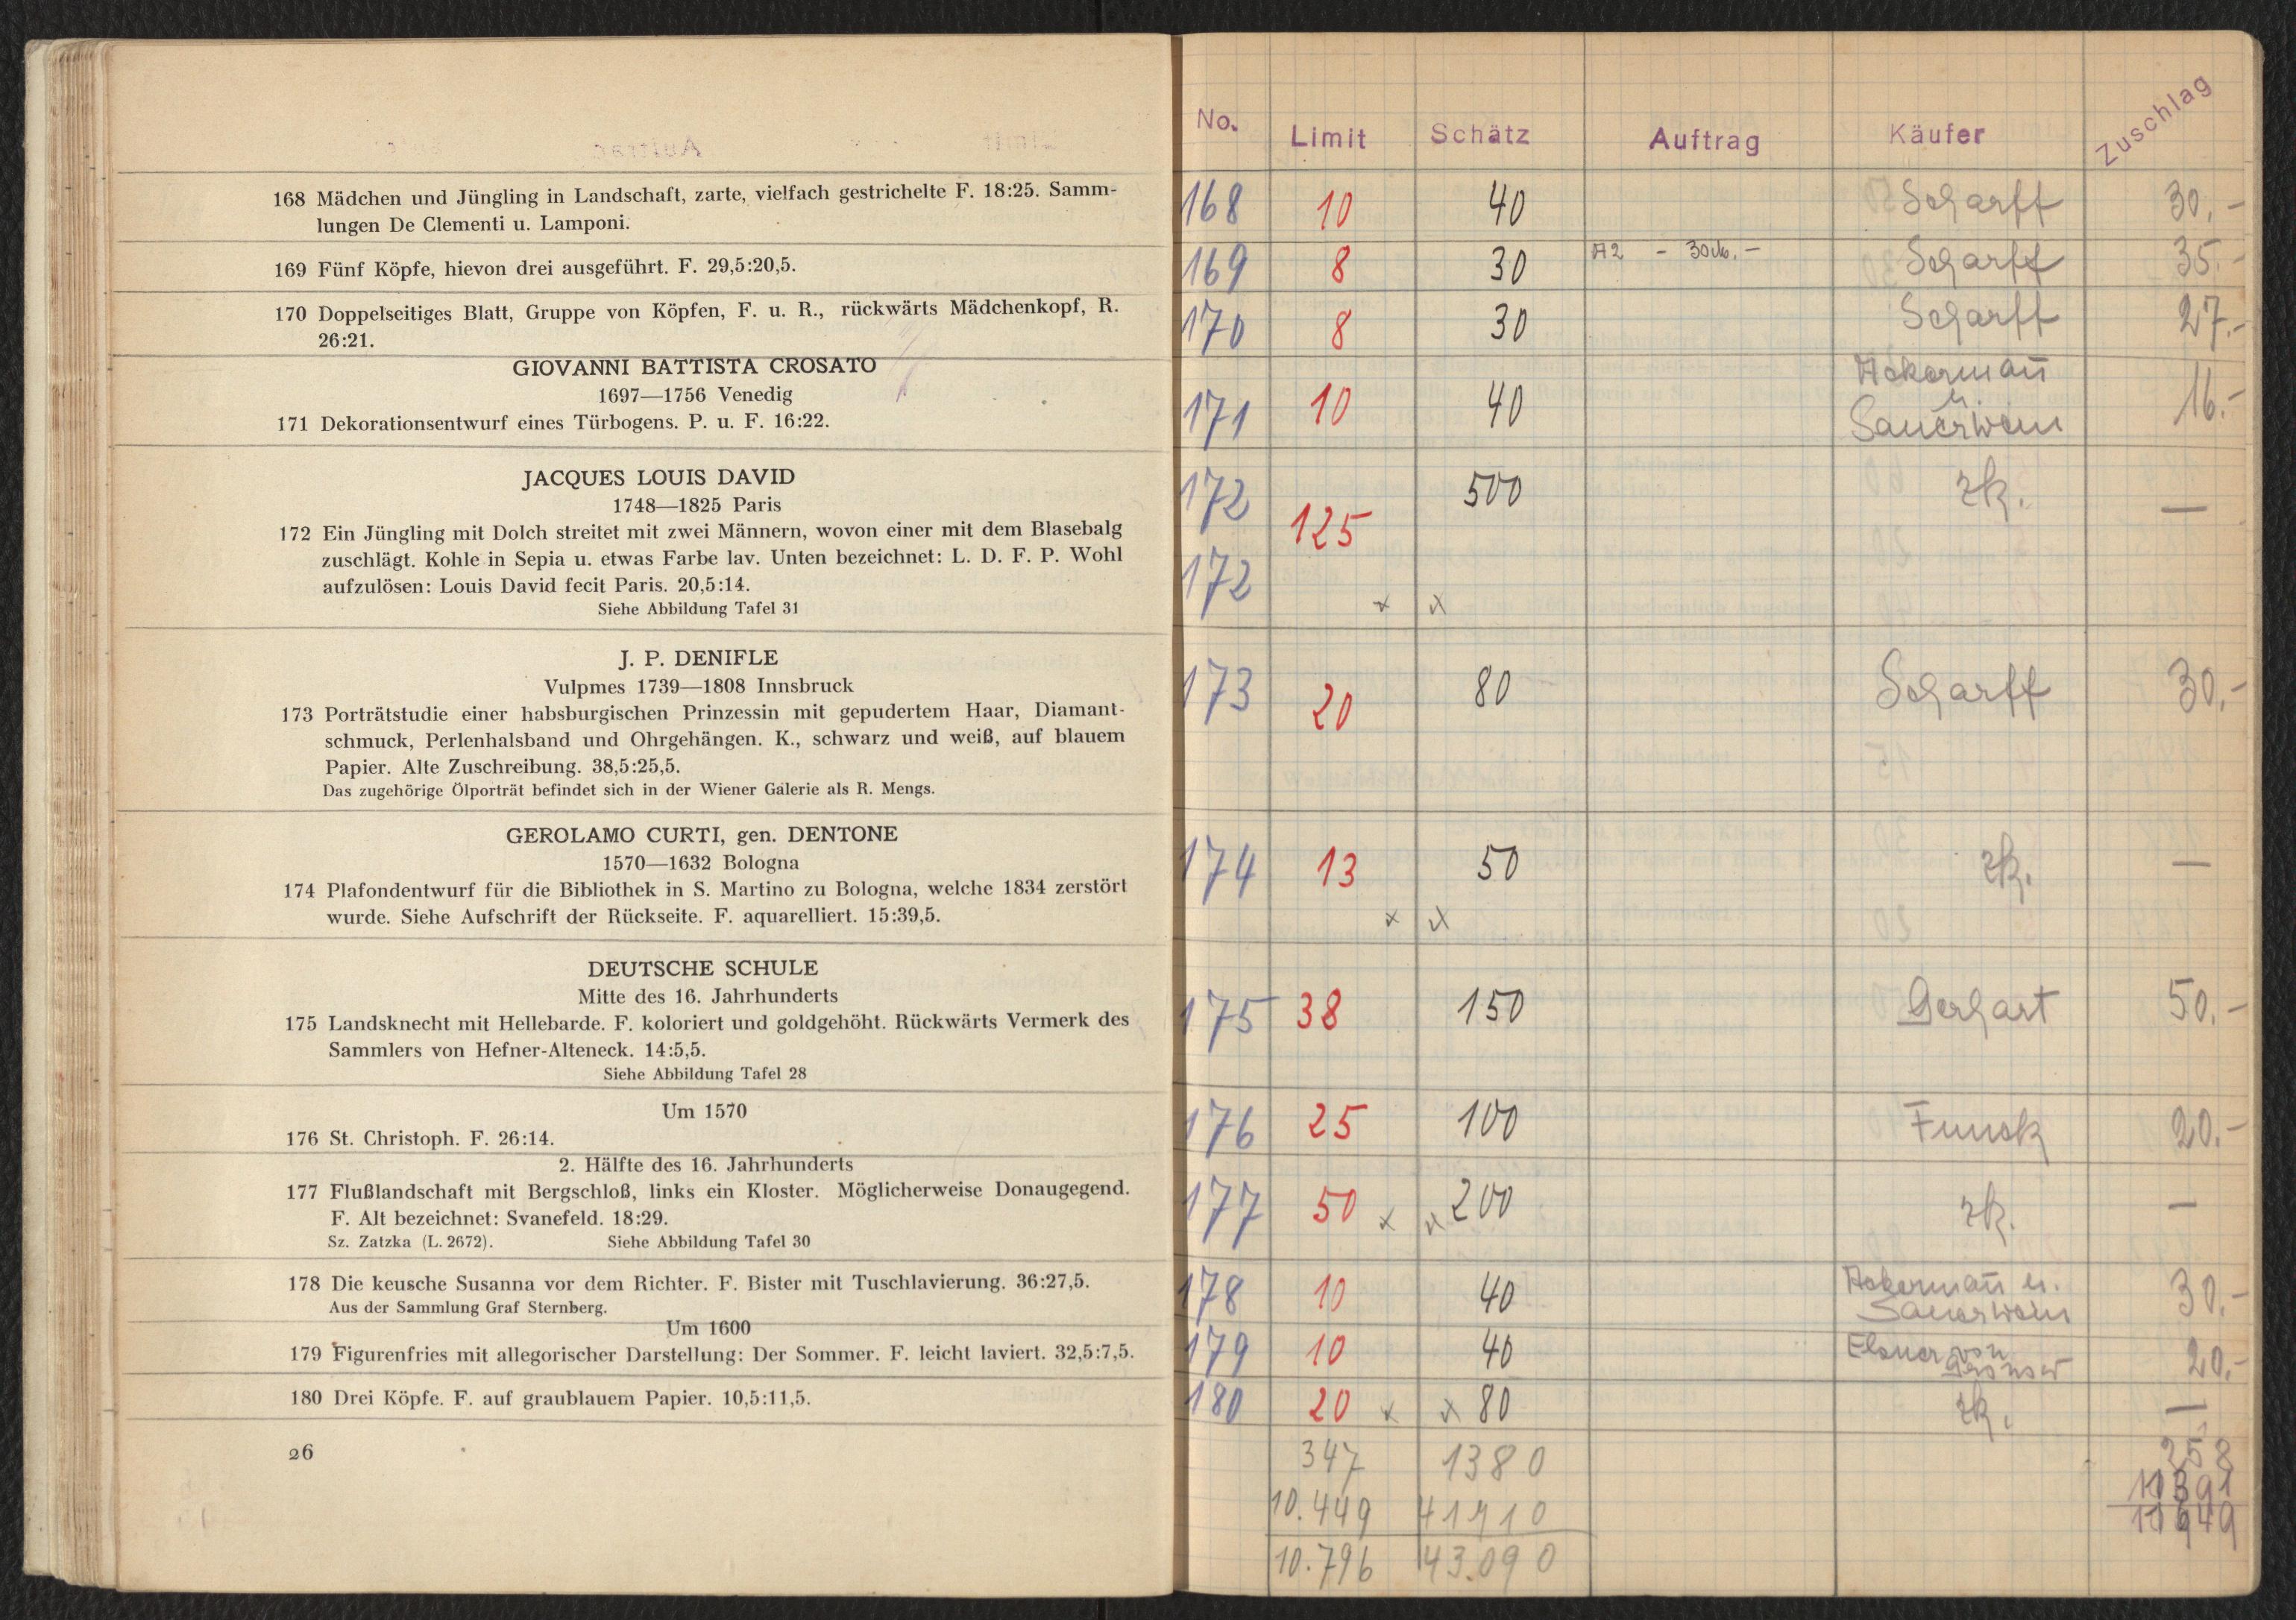 168 Mädchen und Jüngling in Landschaft, zarte, vielfach gestrichelte F. 18:25. Samm-
lungen De Clementi u. Lamponi.
169 Fünf Köpfe, hievon drei ausgeführt. F. 29,5:20,5.
170 Doppelseitiges Blatt, Gruppe von Köpfen, F. u. R., rückwärts Mädchenkopf, R.
26:21.
GIOVANNI BATTISTA CROSATO
1697—1756 Venedig
171 Dekorationsentwurf eines Türbogens. P. u. F. 16:22.
JACQUES LOUIS DAVID
1748—1825 Paris
172 Ein Jüngling mit Dolch streitet mit zwei Männern, wovon einer mit dem Blasebalg
zuschlägt. Kohle in Sepia u. etwas Farbe lav. Unten bezeichnet: L. D. F. P. Wohl
aufzulösen: Louis David fecit Paris. 20,5:14.
Siehe Abbildung Tafel 31
J. P. DENIFLE
Vulpmes 1739—1808 Innsbruck
173 Porträtstudie einer habsburgischen Prinzessin mit gepudertem Haar, Diamant-
schmuck, Perlenhalsband und Ohrgehängen. K., schwarz und weiß, auf blauem
Papier. Alte Zuschreibung. 38,5:25,5.
Das zugehörige Ölporträt befindet sich in der Wiener Galerie als R. Mengs.
GEROLAMO CURTI, gen. DENTONE
1570—1632 Bologna
174 Plafondentwurf für die Bibliothek in S. Martino zu Bologna, welche 1834 zerstört
wurde. Siehe Aufschrift der Rückseite. F. aquarelliert. 15:39,5.
DEUTSCHE SCHULE
Mitte des 16. Jahrhunderts
175 Landsknecht mit Hellebarde. F. koloriert und goldgehöht. Rückwärts Vermerk des
Sammlers von Hefner-Alteneck. 14:5,5.
Siehe Abbildung Tafel 28
Um 1570
176 St. Christoph. F. 26:14.
2. Hälfte des 16. Jahrhunderts
177 Flußlandschaft mit Bergschloß, links ein Kloster. Möglicherweise Donaugegend.
F. Alt bezeichnet: Svanefeld. 18:29.
Sz. Zatzka (L. 2672). Siehe Abbildung Tafel 30
178 Die keusche Susanna vor dem Richter. F. Bister mit Tuschlavierung. 36:27,5.
Aus der Sammlung Graf Sternberg.
Um 1600
179 Figurenfries mit allegorischer Darstellung: Der Sommer. F. leicht laviert. 32,5:7,5.
180 Drei Köpfe. F. auf graublauem Papier. 10,5:11,5.
26
No. Limit Schätz Auftrag Käufer Zuschlag
168 10 40 Scharff 30.-
169 8 30 - 30 . - Scharff 35.-
170 8 30 Scharff 27.-
171 10 40 Ackermañ u. Sauerwein 16.-
172 125 500 zk. —
172 x x
173 20 80 Scharff 30.-
174 13 50 zk. —
x x
175 38 150 Gerhart 50.-
176 25 100 20.-
177 50 x x 200 zk. —
178 10 40 Ackermañ u. Sauerwein 30.-
179 10 40 Elsner von 20.-
180 20 x x 80 zk. —
347 1380 258
10.449 41710 10391
10.796 43.090 10649